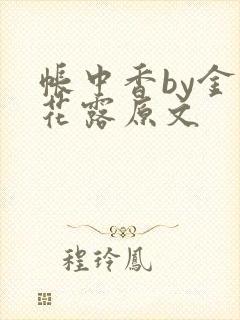 帐中香by金
花露原文
程玲凤